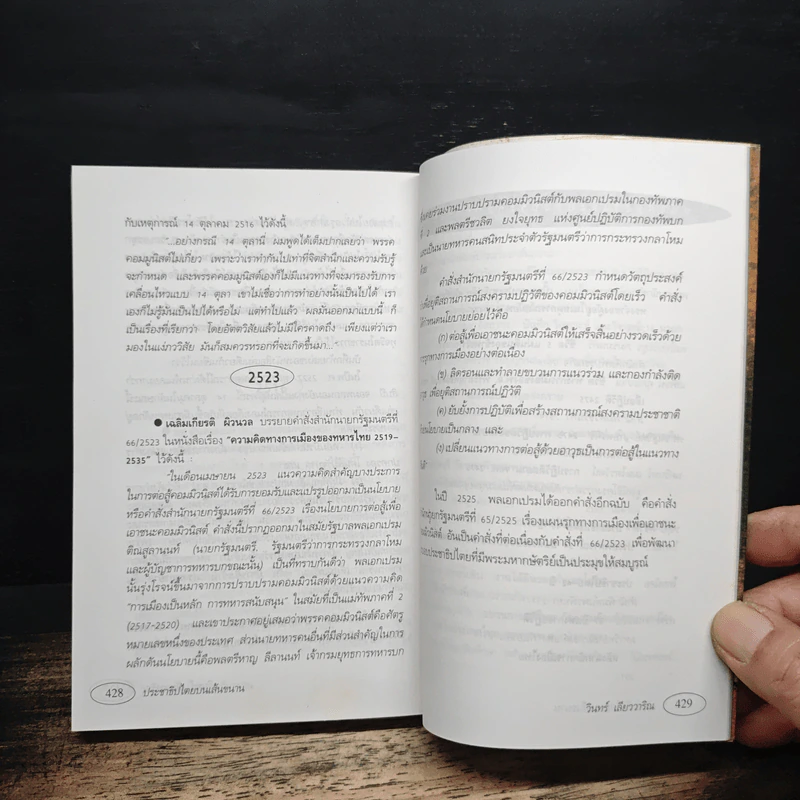 กับเหตุการณ์ 14 ตุลาคม 2516 ไว้ดังนี้
"...อย่างกรณี 14 ตุลานี่ ผมพูดได้เต็มปากเลยว่า พรรค
คอมมูนิสต์ไม่เกี่ยว เพราะว่าเราทำกันไปเท่าที่จิตสำนึกและความรับรู้
จะกำหนด และพรรคคอมมูนิสต์เองก็ไม่มีแนวทางที่จะมารองรับการ
เคลื่อนไหวแบบ 14 ตุลา เขาไม่เชื่อว่าการทำอย่างนั้นเป็นไปได้ เรา
เองก็ไม่รู้มันเป็นไปได้หรือไม่ แต่ทำไปแล้ว ผลมันออกมาแบบนี้ ก็
เป็นเรื่องที่เรียกว่า โดยอัตตวิสัยแล้วไม่มีใครคาดถึง เพียงแต่ว่าเรา
มองในแง่ภาววิสัย มันก็สมควรหรอกที่จะเกิดขึ้นมา..."
2523
● เฉลิมเกียรติ ผิวนวล บรรยายคำสั่งสำนักนายกรัฐมนตรีที่
66/2523 ในหนังสือเรื่อง "ความคิดทางการเมืองของทหารไทย 2519-
2535" ไว้ดังนี้ :
"ในเดือนเมษายน 2523 แนวความคิดสำคัญบางประการ
ในการต่อสู้คอมมิวนิสต์ได้รับการยอมรับและแปรรูปออกมาเป็นนโยบาย
หรือคำสั่งสำนักนายกรัฐมนตรีที่ 66/2523 เรื่องนโยบายการต่อสู้เพื่อ
เอาชนะคอมมิวนิสต์ คำสั่งนี้ปรากฏออกมาในสมัยรัฐบาลพลเอกเปรม
ติณสูลานนท์ (นายกรัฐมนตรี, รัฐมนตรีว่าการกระทรวงกลาโหม
และผู้บัญชาการทหารบกขณะนั้น) เป็นที่ทราบกันดีว่า พลเอกเปรม
นั้นรุ่งโรจน์ขึ้นมาจากการปราบปรามคอมมิวนิสต์ด้วยแนวความคิด
"การเมืองเป็นหลัก การทหารสนับสนุน" ในสมัยที่เป็นแม่ทัพภาคที่ 2
(2517-2520) และเขาประกาศอยู่เสมอว่าพรรคคอมมิวนิสต์คือศัตรู
หมายเลขหนึ่งของประเทศ ส่วนนายทหารคนอื่นที่มีส่วนสำคัญในการ
ผลักดันนโยบายนี้คือพลตรีหาญ ลีลานนท์ เจ้ากรมยุทธการทหารบก
428 ประชาธิปไตยบนเส้นขนาน
ร่วมงานปราบปรามคอมมิวนิสต์กับพลเอกเปรมในกองทัพภาค
ที่ 2 และพลตรีชวลิต ยงใจยุทธ แห่งศูนย์ปฏิบัติการกองทัพบก
เป็นนายทหารคนสนิทประจำตัวรัฐมนตรีว่าการกระทรวงกลาโหม
คำสั่งสำนักนายกรัฐมนตรีที่ 66/2523 กำหนดวัตถุประสงค์
เพื่อยุติสถานการณ์สงครามปฏิวัติของคอมมิวนิสต์โดยเร็ว คำสั่ง
กำหนดนโยบายย่อยไว้คือ
(ก) ต่อสู้เพื่อเอาชนะคอมมิวนิสต์ให้เสร็จสิ้นอย่างรวดเร็วด้วย
ทางการเมืองอย่างต่อเนื่อง
(ข) ลิดรอนและทำลายขบวนการแนวร่วม และกองกำลังติด
เพื่อยุติสถานการณ์ปฏิวัติ
(ค) ยับยั้งการปฏิบัติเพื่อสร้างสถานการณ์สงครามประชาชาติ
นโยบายเป็นกลาง และ
(ง) เปลี่ยนแนวทางการต่อสู้ด้วยอาวุธเป็นการต่อสู้ในแนวทาง
ในปี 2525 พลเอกเปรมได้ออกคำสั่งอีกฉบับ คือคำสั่ง
นายกรัฐมนตรีที่ 65/2525 เรื่องแผนรุกทางการเมืองเพื่อเอาชนะ
คอมมิวนิสต์ อันเป็นคำสั่งที่ต่อเนื่องกับคำสั่งที่ 66/2523 เพื่อพัฒนา
ประชาธิปไตยที่มีพระมหากษัตริย์เป็นประมุขให้สมบูรณ์
วินทร์ เลียววาริณ 429